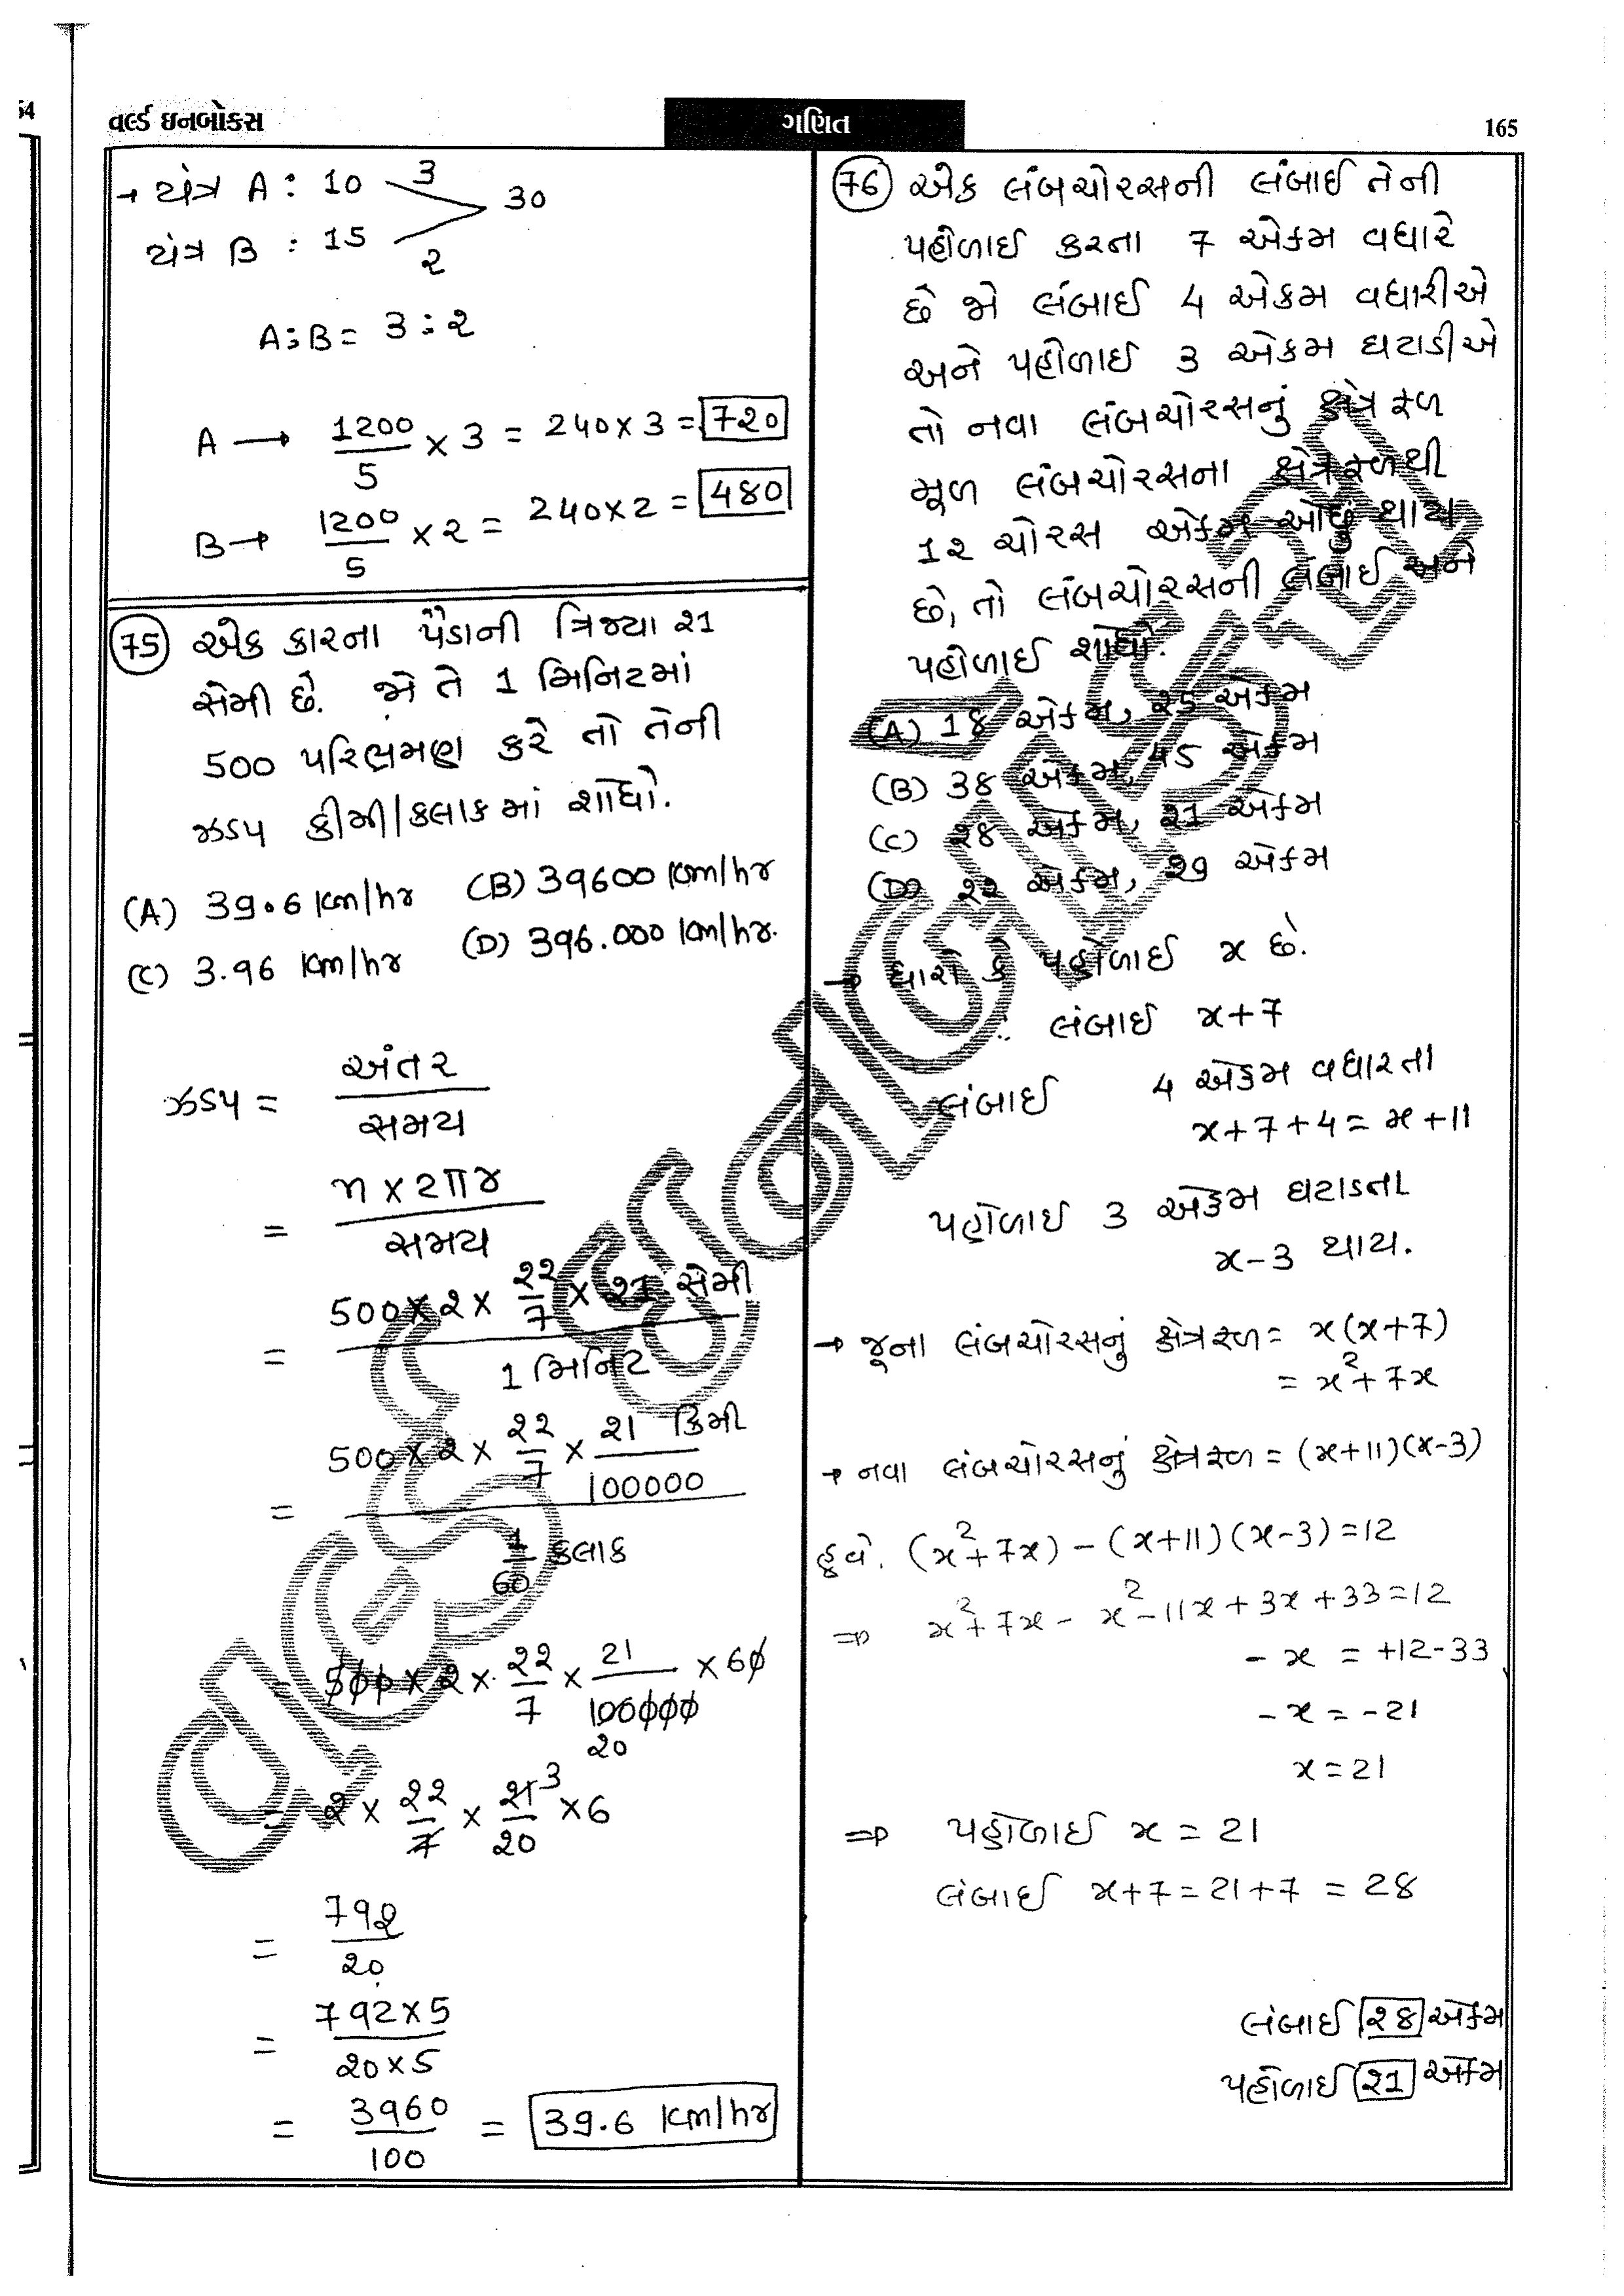 54
વર્લ્ડ ઇનબોક્સ
ગણિત
165
→ યંત્ર A : 10 3
30
યંત્ર B : 15 2
A:B = 3:2
A → 1200/5 × 3 = 240×3 = 720
B → 1200/5 × 2 = 240×2 = 480
75 એક કારના પૈડાની ત્રિજ્યા 21
સેમી છે. જો તે 1 મિનિટમાં
500 પરિભ્રમણ કરે તો તેની
ઝડપ કીમી/કલાકમાં શોધો.
(A) 39.6 km/hr (B) 39600 km/hr
(C) 3.96 km/hr (D) 396.000 km/hr.
ઝડપ = અંતર/સમય
= n × 2πr/સમય
= 500 × 2 × 22/7 × 21 સેમી
1 મિનિટ
= 500 × 2 × 22/7 × 21/100000 કિમી
1/60 કલાક
= 500 × 2 × 22/7 × 21/100000 × 60
20
= 2 × 22/7 × 21/20 × 6 3
= 792/20
= 792×5/20×5
= 3960/100 = 39.6 km/hr
76 એક લંબચોરસની લંબાઈ તેની
પહોળાઈ કરતા 7 એકમ વધારે
છે જો લંબાઈ 4 એકમ વધારીએ
અને પહોળાઈ 3 એકમ ઘટાડીએ
તો નવા લંબચોરસનું ક્ષેત્રફળ
મૂળ લંબચોરસના ક્ષેત્રફળથી
12 ચોરસ એકમ ઓછુ થાય
છે, તો લંબચોરસની લંબાઈ અને
પહોળાઈ શોધો.
(A) 18 એકમ, 25 એકમ
(B) 38 એકમ, 45 એકમ
(C) 28 એકમ, 21 એકમ
(D) 22 એકમ, 29 એકમ
→ ધારો કે પહોળાઈ x છે.
∴ લંબાઈ x+7
લંબાઈ 4 એકમ વધારતા
x+7+4 = x+11
પહોળાઈ 3 એકમ ઘટાડતા
x-3 થાય.
→ જૂના લંબચોરસનું ક્ષેત્રફળ = x(x+7)
= x²+7x
→ નવા લંબચોરસનું ક્ષેત્રફળ = (x+11)(x-3)
હવે. (x²+7x) - (x+11)(x-3) = 12
⇒ x²+7x - x²-11x+3x+33 = 12
- x = +12-33
- x = -21
x = 21
⇒ પહોળાઈ x = 21
લંબાઈ x+7 = 21+7 = 28
લંબાઈ 28 એકમ
પહોળાઈ 21 એકમ